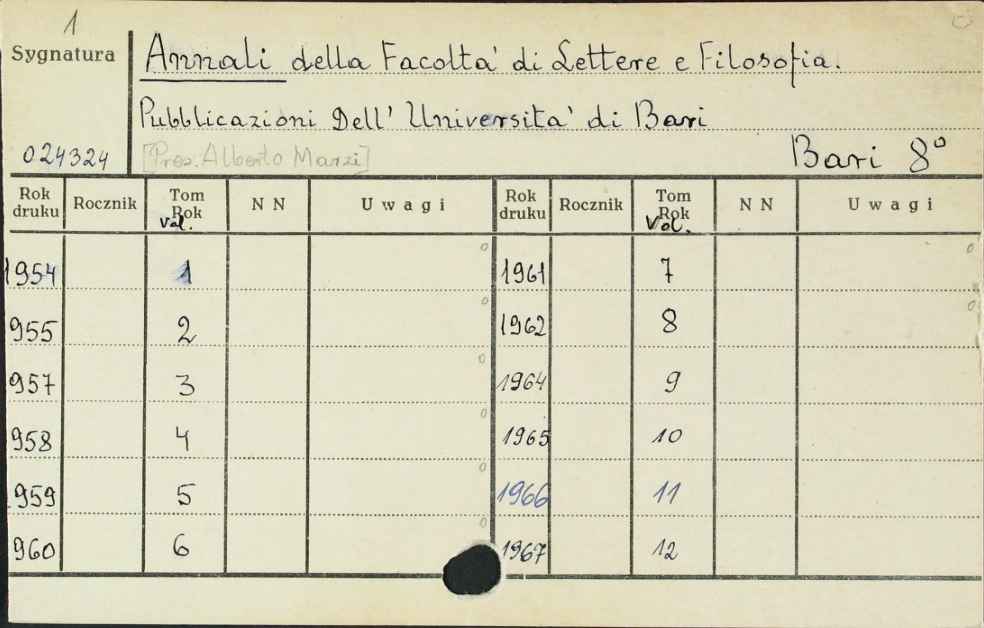 1
Sygnatura
Annali della Facolta' di Lettere e Filosofia.
Pubblicazioni Dell' Universita' di Bari
024324 [Prez. Alberto Marzi] Bari 8°
Rok druku Rocznik Tom Rok Vol. NN Uwagi Rok druku Rocznik Tom Rok Vol. NN Uwagi
1954 1 0 1961 7 0
955 2 0 1962 8 0
957 3 0 1964 9
958 4 0 1965 10
959 5 0 1966 11
960 6 0 1967 12